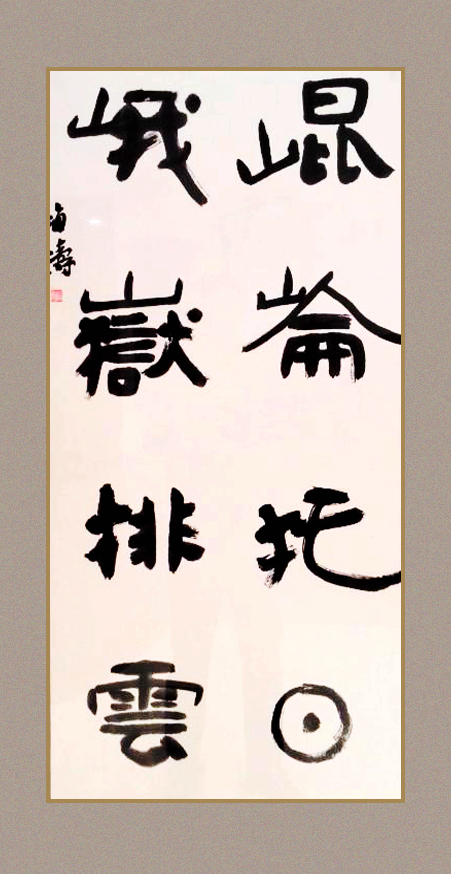 崐崘托日
峨嶽排雲
海濤